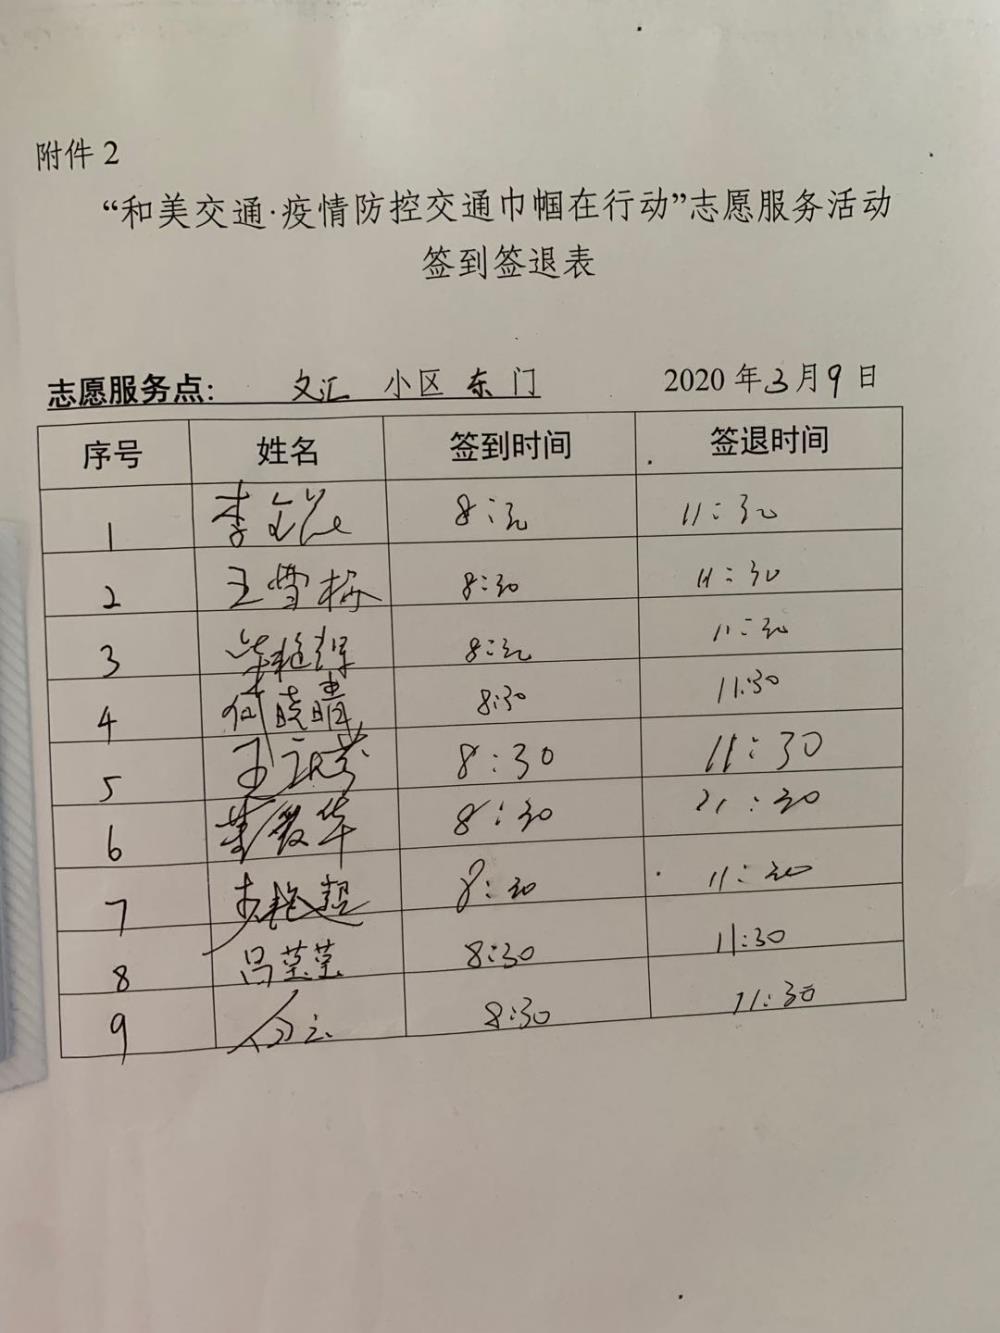 附件2
“和美交通·疫情防控交通巾帼在行动”志愿服务活动
签到签退表
志愿服务点： 文汇 小区 东 门 2020年3月9日
序号 姓名 签到时间 签退时间
1 李 8:30 11:30
2 王雪梅 8:30 11:30
3 8:30 11:30
4 何晓晴 8:30 11:30
5 王 8:30 11:30
6 董爱华 8:30 11:30
7 8:30 11:30
8 吕莹莹 8:30 11:30
9 8:30 11:30